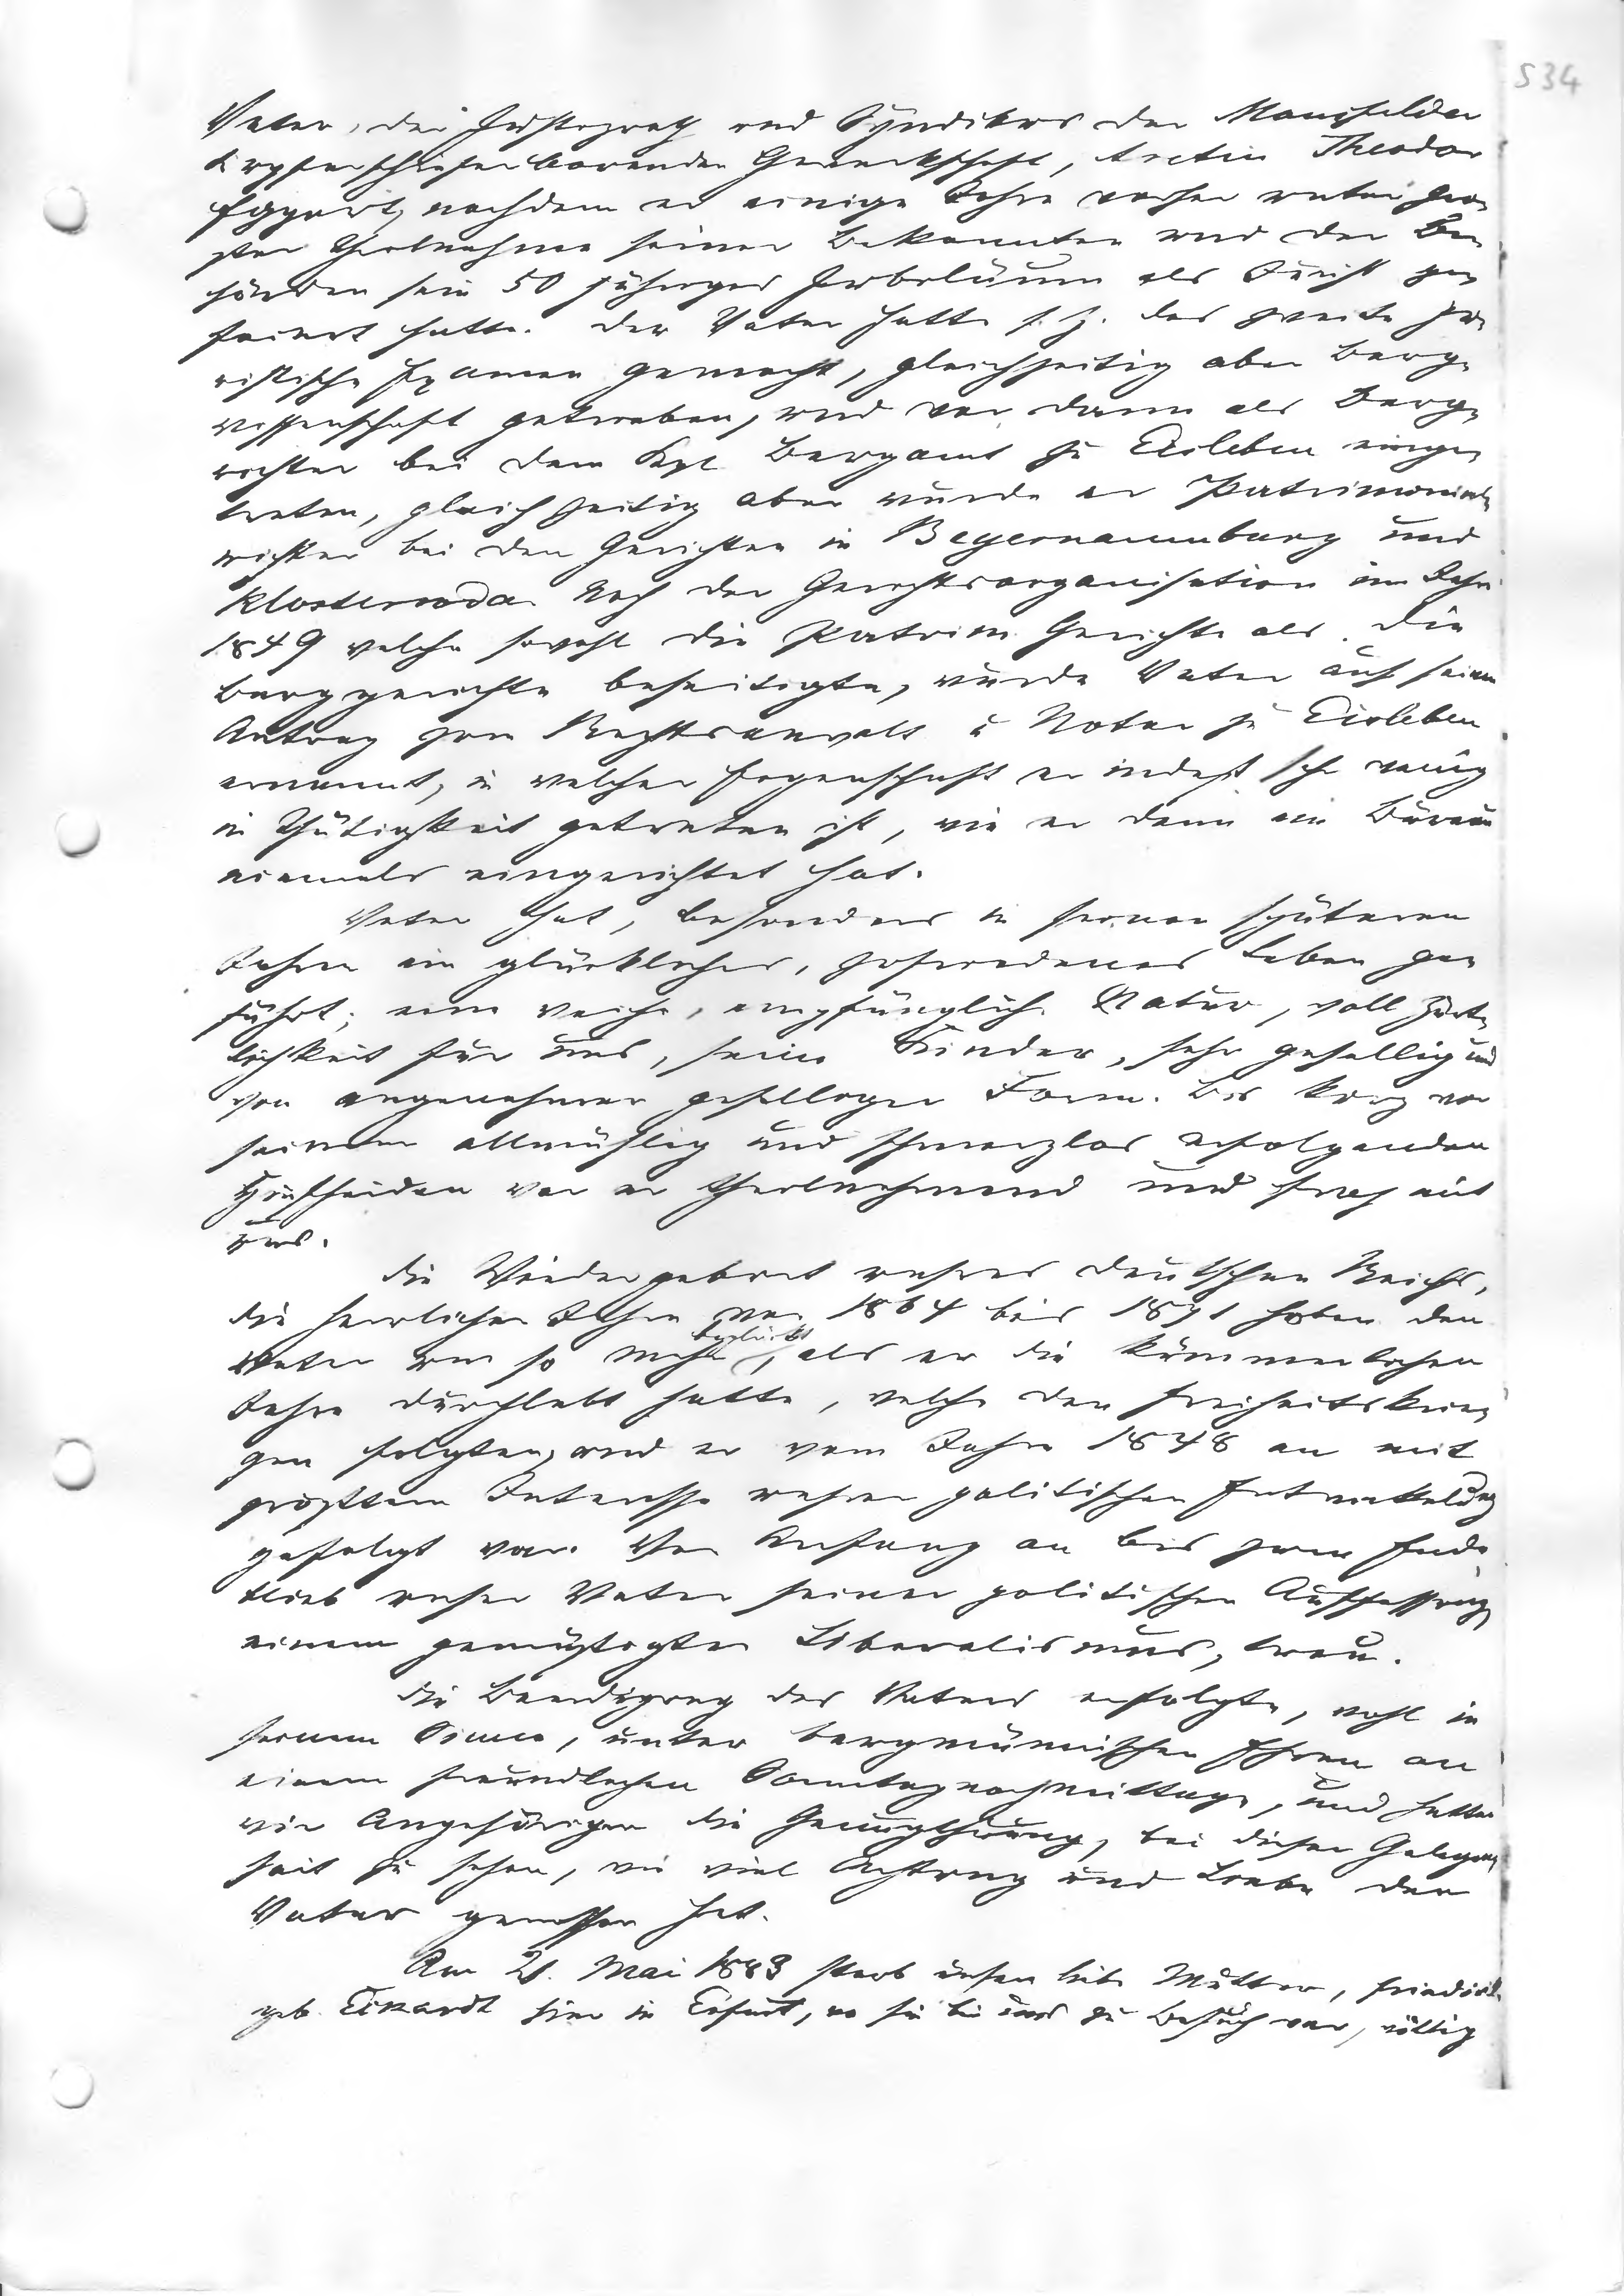 S 34
Vater, der Justizrath und Syndikus der Mansfelder
Kupferschieferbauenden Gewerkschaft, Theodor
nachdem er einige Jahre vorher unter gro-
ßer Theilnahme seiner Bekannten und der Be-
hörden sein 50 jähriges Jubiläum als Jurist ge-
feiert hatte. Der Vater hatte s. Z. das zweite ju-
ristische Examen gemacht, gleichzeitig aber Berg-
wissenschaft getrieben, und war dann als Berg-
richter bei dem Kgl. Bergamt zu Eisleben einge-
treten, gleichzeitig aber wurde er Patrimonial-
richter bei den Gerichten in Beyernaumburg und
Klosterroda. Nach der Gerichtsorganisation im Jahre
1849 welche sowohl die Patrim. Gerichte als die
Berggerichte beseitigte, wurde Vater auf seinen
Antrag zum Rechtsanwalt u Notar zu Eisleben
ernannt, in welcher Eigenschaft er indeß sehr wenig
in Thätigkeit getreten ist, wie er denn ein Büreau
niemals eingerichtet hat.
Vater hat, besonders in seinen späteren
Jahren ein glückliches, zufriedenes Leben ge-
führt; eine weiche, empfängliche Natur, voll Zärt-
lichkeit für uns, seine Kinder, sehr gesellig und
von angenehmer geselliger Form. Bis kurz vor
seinem allmählig und schmerzlos erfolgenden
Hinscheiden war er theilnehmend und sprach mit
uns.
Die Wiedergeburt unseres deutschen Reichs,
die herrlichen Jahre von 1864 bis 1871 haben den
Vater um so mehr beglückt, als er die kümmerlichen
Jahre durchlebt hatte, welche den Freiheitskrie-
gen folgten, und er vom Jahre 1848 an mit
größtem Interesse unserer politischen Entwickelung
gefolgt war. Von Anfang an bis zum Ende
blieb unser Vater seiner politischen Auffassung,
einem gemäßigten Liberalismus, treu.
Die Beerdigung des Vaters erfolgte, wohl in
seinem Sinne, unter bergmännischen Ehren an
einem freundlichen Sonntagnachmittage, und hatten
wir Angehörigen die Genugthuung, bei dieser Gelegen-
heit zu sehen, wie viel Achtung und Liebe der
Vater genossen hat.
Am 21. Mai 1883 starb unsere liebe Mutter, Friederike
geb. Eckardt hier in Erfurt, wo sie bei uns zu Besuch war, völlig